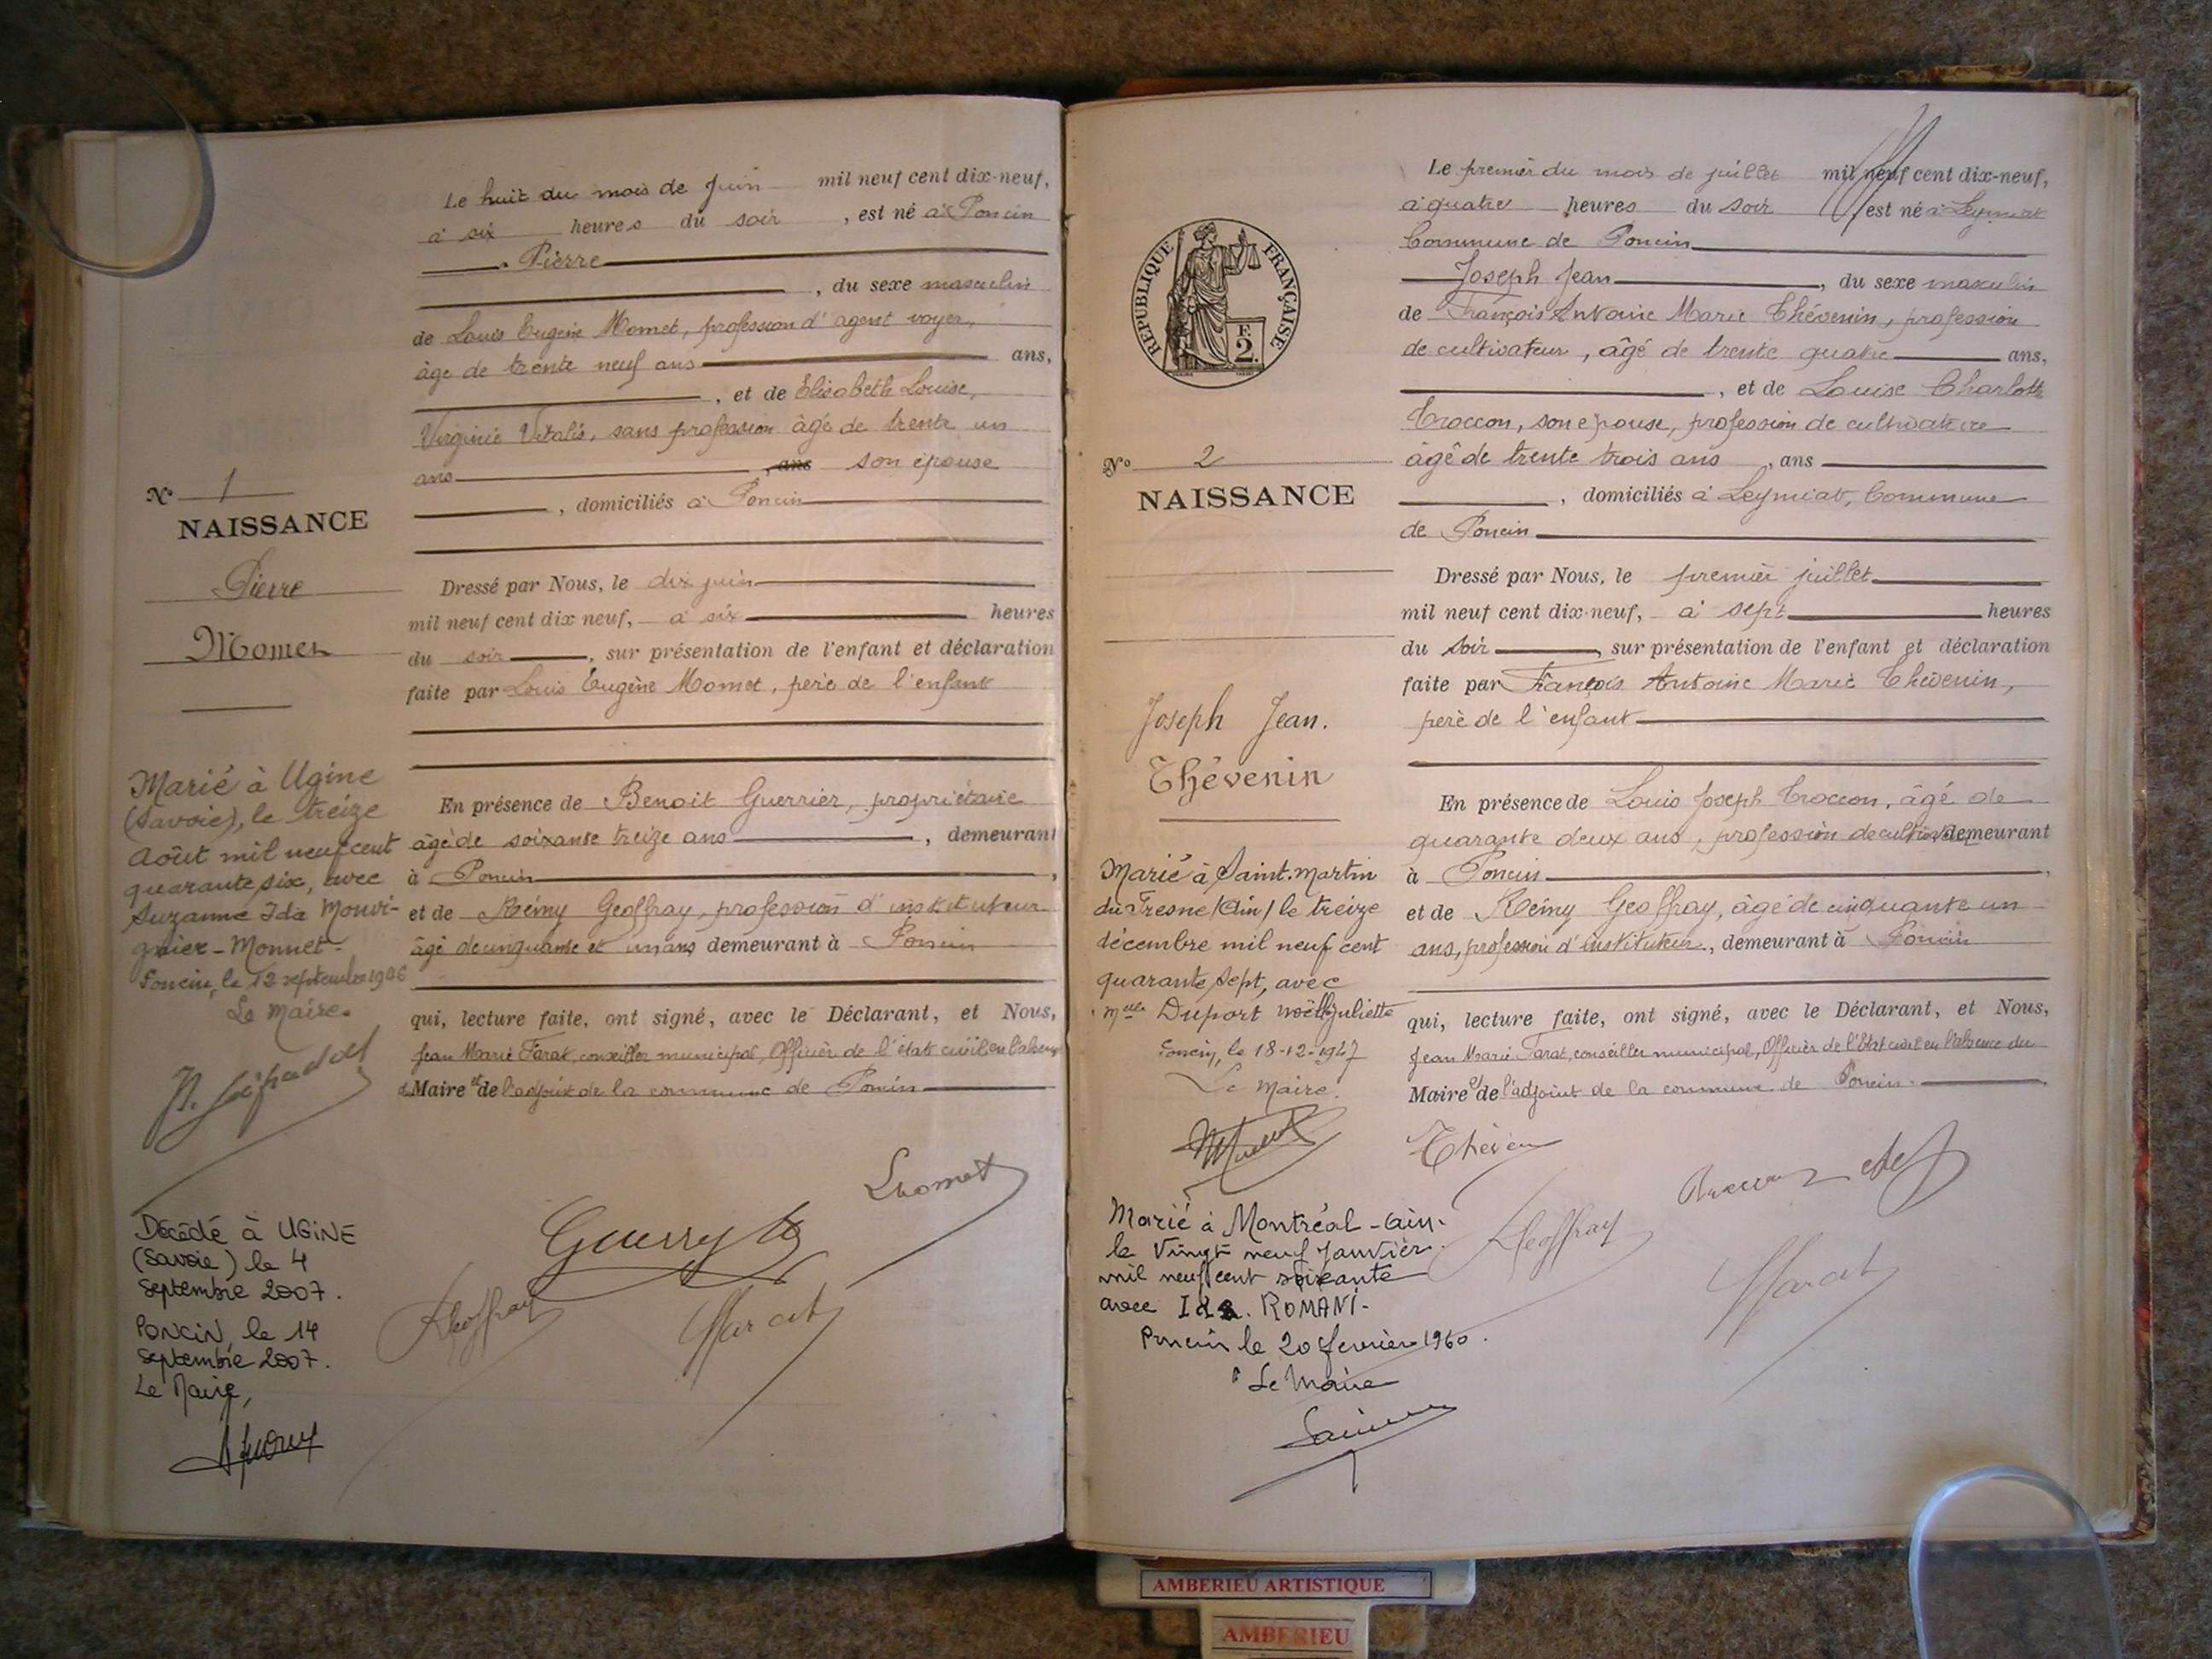 Le huit du mois de Juin mil neuf cent dix-neuf,
à six heures du soir, est né à Poncin
Pierre
, du sexe masculin
de Louis Eugène Momet, profession d'agent voyer,
âge de trente neuf ans ans,
, et de Elisabeth Louise,
Virginie Vitalis, sans profession âgé de trente un
ans , ans son épouse
, domiciliés à Poncin
Dressé par Nous, le dix juin
mil neuf cent dix neuf, à six heures
du soir, sur présentation de l'enfant et déclaration
faite par Louis Eugène Momet, père de l'enfant
En présence de Benoit Guerrier, propriétaire
âgé de soixante treize ans, demeurant
à Poncin,
et de Rémy Geoffray, profession d'instituteur
âgé de cinquante et un ans demeurant à Poncin
qui, lecture faite, ont signé, avec le Déclarant, et Nous,
Jean Marie Farat, conseiller municipal, Officier de l'état civil en l'absence
du Maire et de l'adjoint de la commune de Poncin
Nº 1
NAISSANCE
Pierre
Momet
Marié à Ugine
(Savoie), le treize
Août mil neuf cent
quarante six, avec
Suzanne Ida Mouvi-
gnier-Monnet-
Poncin, le 12 septembre 1946
Le Maire.
Décédé à UGINE
(Savoie) le 4
Septembre 2007.
PONCIN, le 14
Septembre 2007.
Le Maire,
Lmomet
Geoffray
Farat
Le premier du mois de juillet mil neuf cent dix-neuf,
à quatre heures du soir, est né à Leymiat
Commune de Poncin
Joseph Jean, du sexe masculin
de François Antoine Marie Thévenin, profession
de cultivateur, âgé de trente quatre ans,
, et de Louise Charlotte
Croccon, son épouse, profession de cultivatrice
âgé de trente trois ans , ans
, domiciliés à Leymiat, Commune
de Poncin
Dressé par Nous, le premier juillet
mil neuf cent dix-neuf, à sept heures
du soir, sur présentation de l'enfant et déclaration
faite par François Antoine Marie Thévenin,
père de l'enfant
En présence de Louis Joseph Croccon, âgé de
quarante deux ans, profession de cultivateur demeurant
à Poncin,
et de Rémy Geoffray, âgé de cinquante un
ans, profession d'instituteur, demeurant à Poncin
qui, lecture faite, ont signé, avec le Déclarant, et Nous,
Jean Marie Farat, conseiller municipal, Officier de l'état civil en l'absence du
Maire et de l'adjoint de la commune de Poncin.
RÉPUBLIQUE FRANÇAISE
2F.
Nº 2
NAISSANCE
Joseph Jean.
Thévenin
Marié à Saint-Martin
du Fresne (Ain) le treize
décembre mil neuf cent
quarante sept, avec
Melle Duport Noëlle Juliette
Poncin, le 18-12-1947
Le Maire.
Marié à Montréal-Ain-
le Vingt neuf Janvier
mil neuf cent soixante
avec Ida. ROMANI-
Poncin le 20 février 1960.
Le Maire
Théven
Geoffray
Farat
AMBERIEU ARTISTIQUE
AMBERIEU